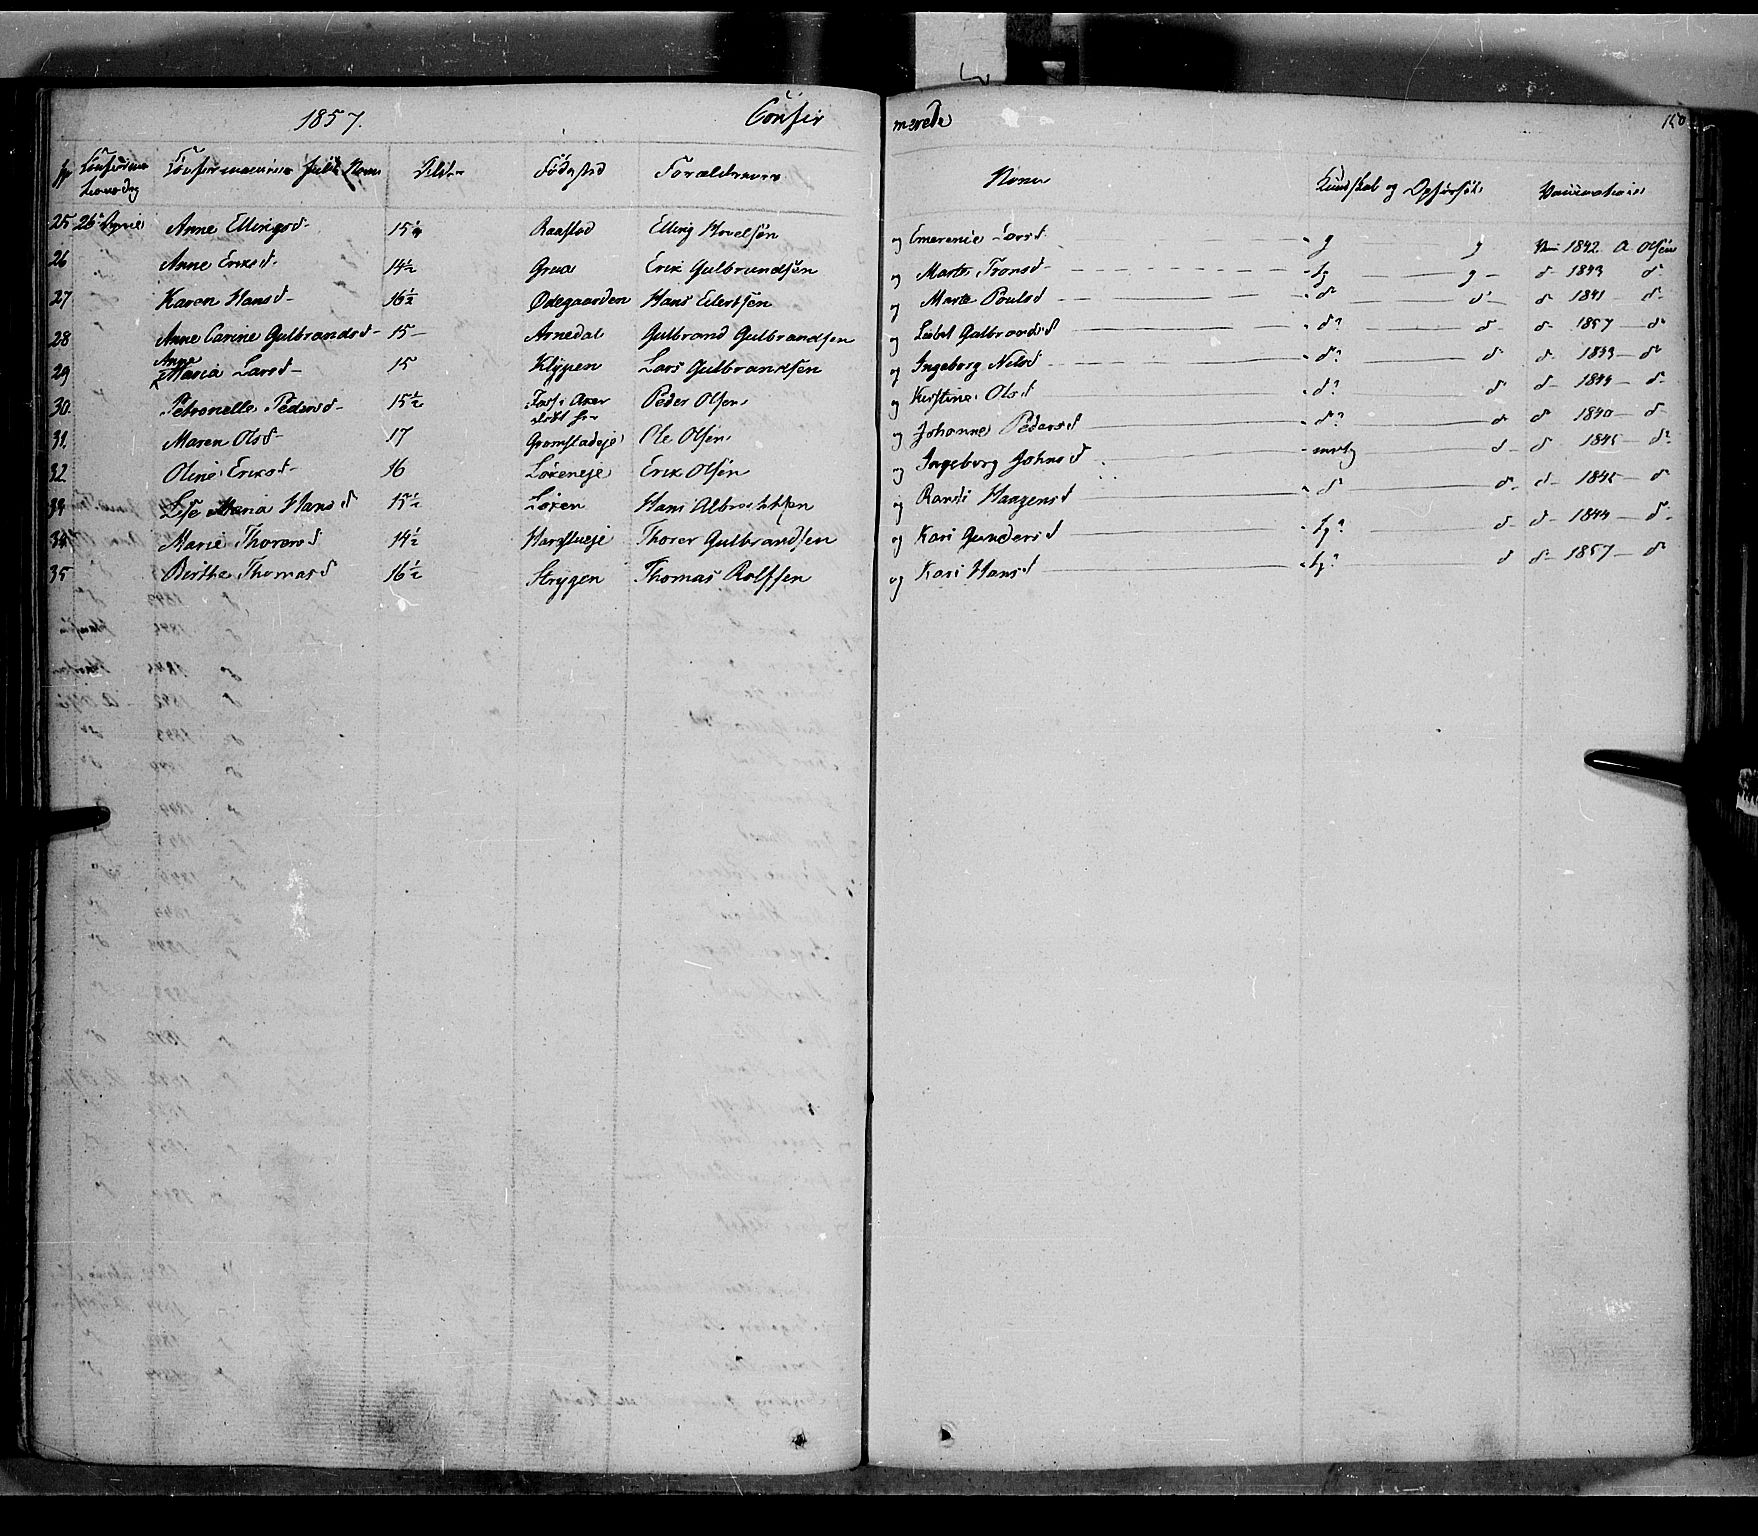 1857. Confir merede 160
No Confirma Confirmanternes fulde Navn Alder Fødested Forældrenes Navne Kundskab og Opførsel Vaccination
tionsdag
25 26 Anne Ellingsd 15 Raastad Elling Hovelsen og Emerenie Larsd g g 1842 A Olsen
26 Anne Eriksd 14½ Grua Erik Gulbrandsen og Marte Tronsd tg g d 1843 d
27 Karen Hansd 16½ Ødegaarden Hans Eilertsen og Marte Poulsd d d d 1841 d
28 Anne Carine Gulbrandsd 15 Arnedal Gulbrand Gulbrandsen og Lisbet Gulbrandsd d d d 1857 d
29 Anne Maria Larsd 15 Klypen Lars Gulbrandsen og Ingeborg Nilsd d d d 1843 d
30. Petronelle Pedersd 15½ Peder Olsen og Kirstine Olsd d d d 1844 d
31. Maren Olsd 17 Gromstadeje Ole Olsen og Johanne Pedersd d d d 1840 d
32 Oline Eriksd 16 Løkeneje Erik Olsen og Ingeborg Johnsd mtg d d 1845 d
33 Lise Maria Hansd 15½ Løken Hans Albrechtsen og Randi Haagensd d d d 1845 d
34 Marie Thorersd 14½ Thorer Gulbrandsen og Kari Gundersd tg d d 1844 d
35 Berthe Thomasd 16½ Strygen Thomas Rolfsen og Kari Hansd tg d d 1857 d